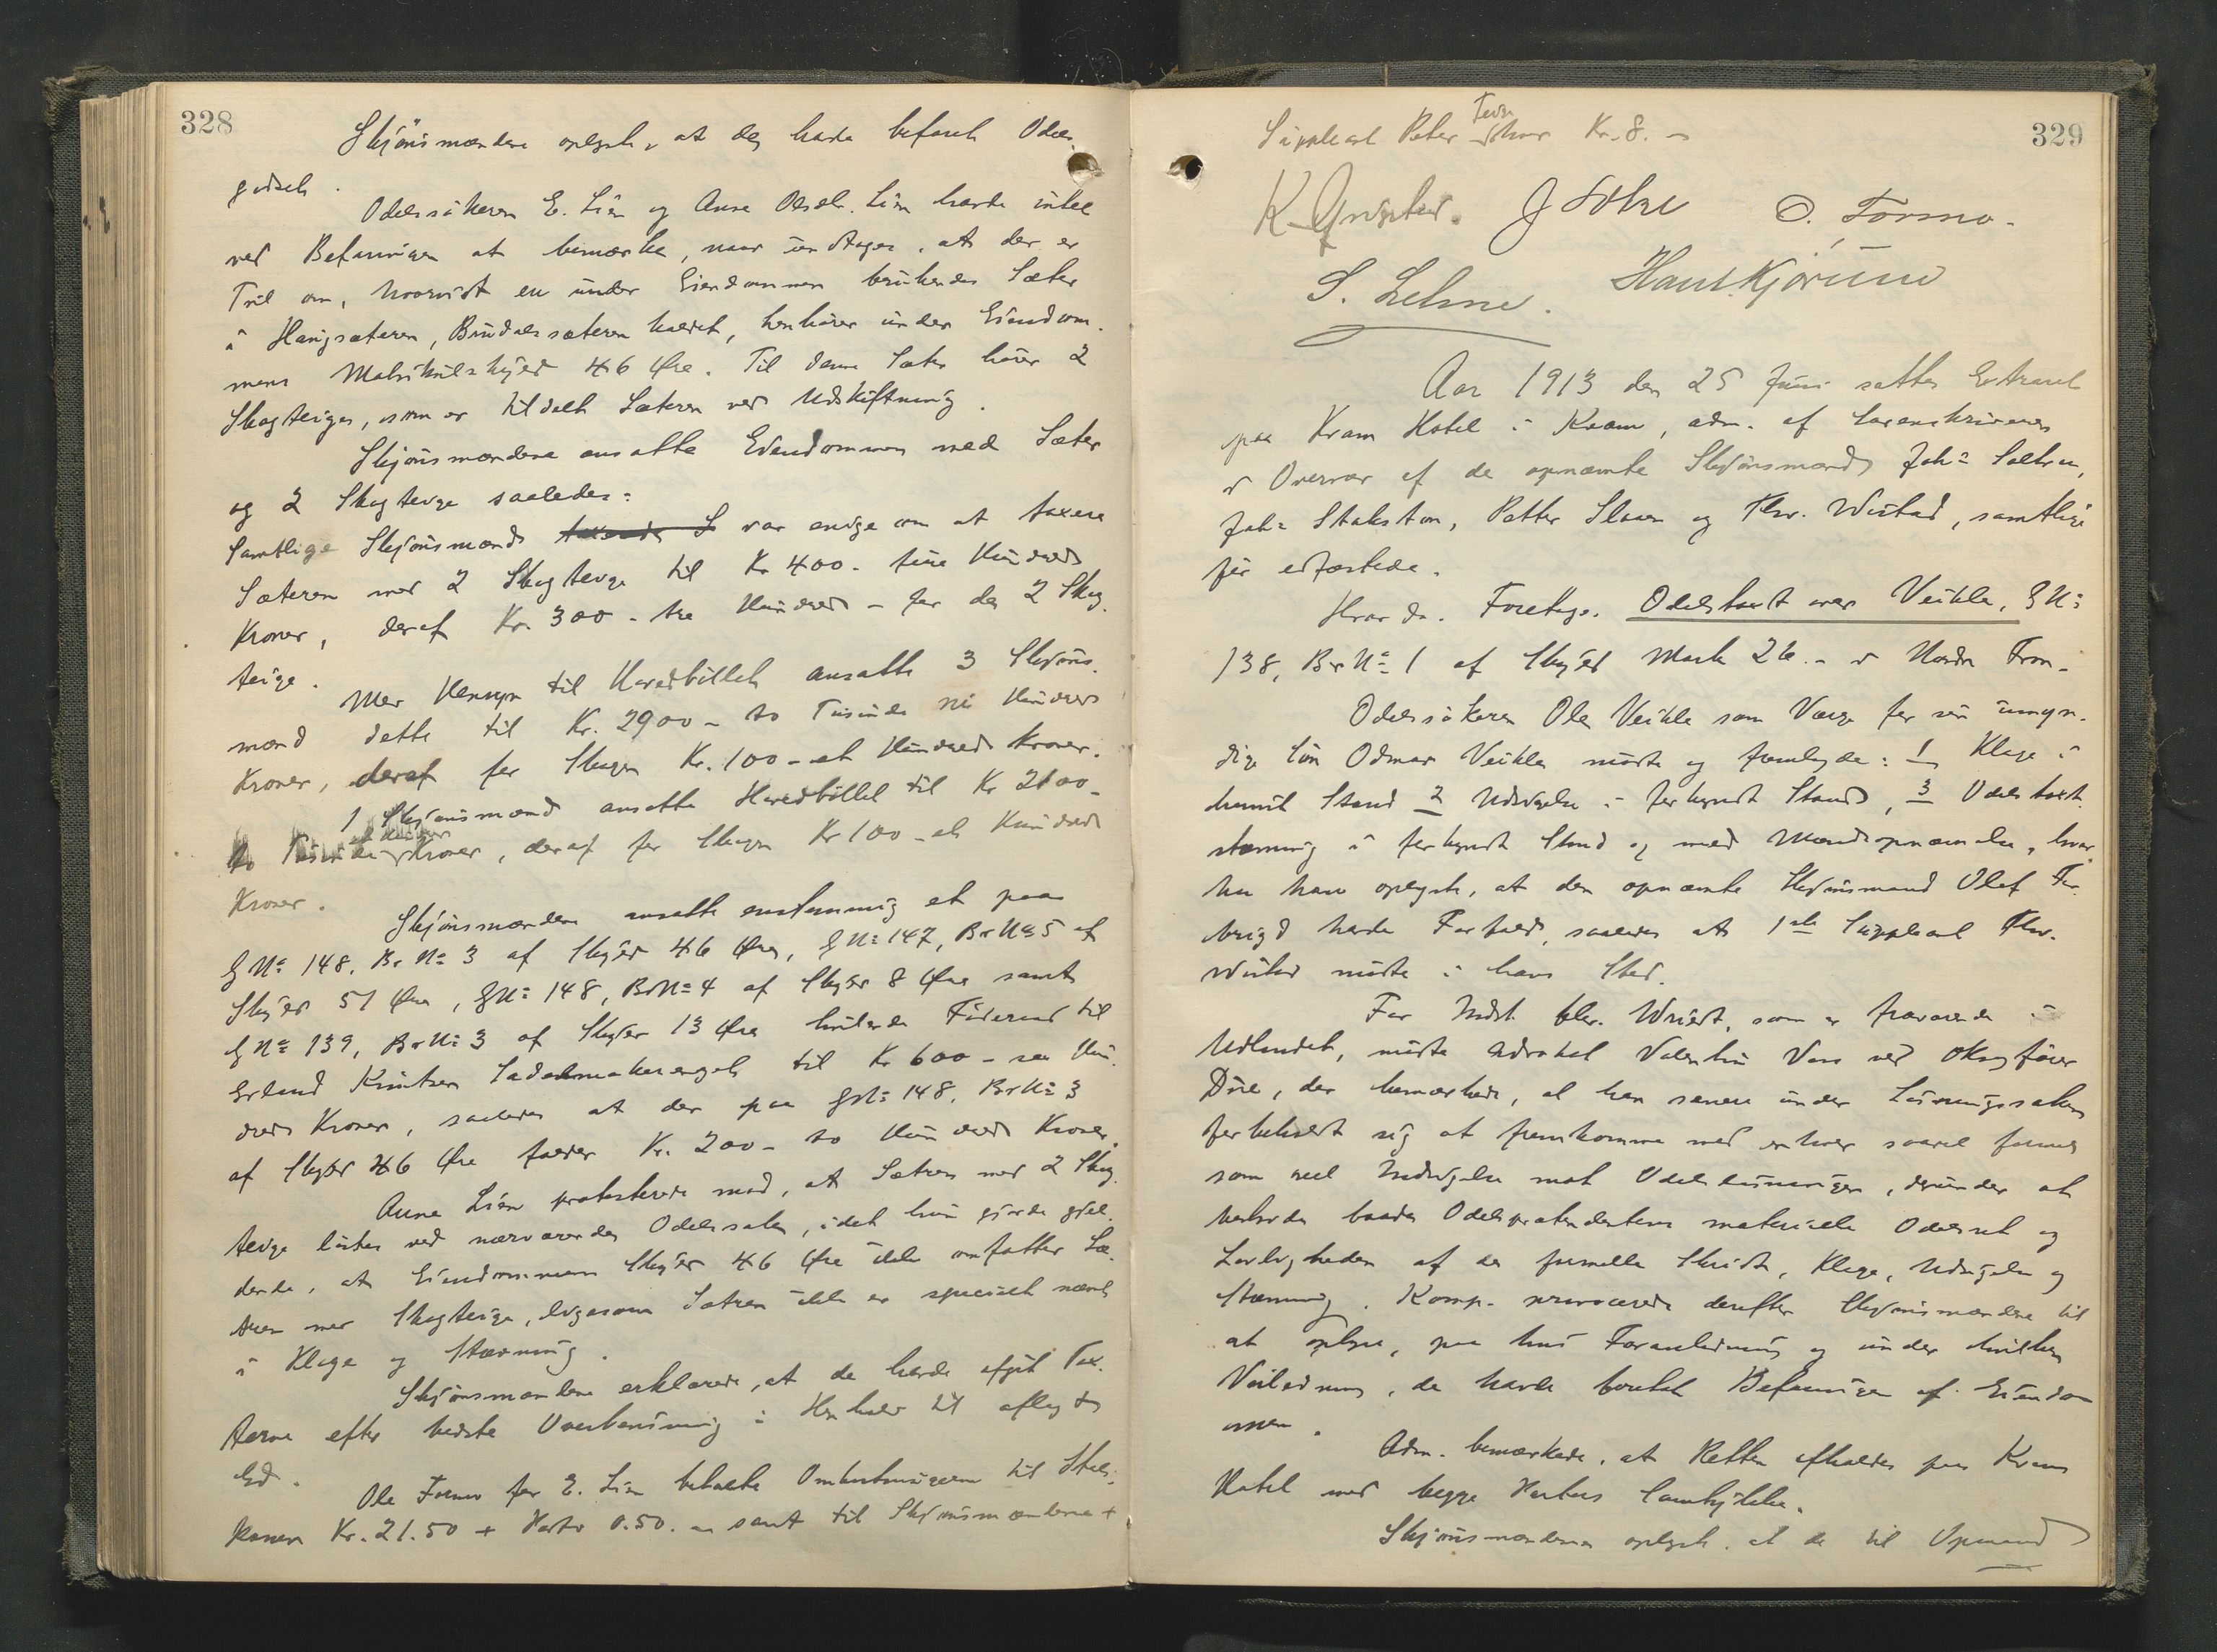 328
Skjönsmændene oplyste, at de havde befaret Odels-
godset.
Odelssökeren E. Lien og Anne Olsdtr. Lien havde intet
ved Befaringen at bemærke, naar undtages, at der er
Tvil om, hvorvidt en under Eiendommen brukendes Sæter
i Haugsæteren, Brudalssæteren kaldet, henhörer under Eiendom-
mens Matrikulskyld 46 Øre. Til denne Sæter hörer 2
Skogteiger, som er tildelt Sæteren ved Udskiftning.
Skjönsmændene ansatte Eiendommen med Sæter
og 2 Skogteige saaledes:
Samtlige Skjönsmænd var enige om at taxere
Sæteren med 2 Skogteige til Kr 400 - fire Hundrede
Kroner, deraf Kr. 300 - tre Hundrede - for de 2 Skog-
teige.
Med Hensyn til Hovedböllet ansatte 3 Skjöns-
mænd dette til Kr. 2900 - to Tusinde ni Hundrede
Kroner, deraf for Skogen Kr. 100 - et Hundrede Kroner.
1 Skjönsmænd ansatte Hovedböllet til Kr 2100 -
to Tusinde Kroner, deraf for Skogen Kr 100 - et Hundrede
Kroner.
Skjönsmændene ansatte enstemmig et paa
G No 148, Br No 3 af Skyld 46 Øre, G No 147, Br No 5 af
Skyld 51 Øre, G No 148, Br No 4 af Skyld 8 Øre samt
G No 139, Br No 3 af Skyld 13 Øre hvilende Föderaad til
Erland Knutsen Sadelmakerenget til Kr 600 - sex Hun-
drede Kroner, saaledes at der paa G No 148, Br No 3
af Skyld 46 Øre falder Kr. 200 - to Hundrede Kroner.
Anne Lien protesterede mod, at Sætren med 2 Skog-
teige löstes ved nærværende Odelssak, idet hun gjorde gjæl-
dende, at Eiendommens Skyld 46 Øre ikke omfatter Sæ-
tren med Skogteige, ligesom Sætren ikke er specielt nævnt
i Klage og Stævning.
Skjönsmændene erklærede, at de havde afgit Tax-
terne efter bedste Overbevisning i Henhold til aflagt
Ed.
Ole Formo for E. Lien betalte Omkostningerne til Stats-
kassen Kr. 21.50 + Porto 0.50. - samt til Skjönsmændene +
329
Suppleant Peter Kr. 8. -
K. J Solne O. Formo.
S. Lehne. Hans Kjörum
Aar 1913 den 25 Juni sattes Extraret
paa Kvam Hotel i Kvam, adm. af Sorenskriveren
i Overvær af de opnævnte Skjönsmænd Joh: Solhen,
Joh: Stakston, Petter Slaaen og Thv. Wistad, samtlige
för edfæstede.
Hvorda. Foretoges. Odelstaxt over Veikle, G No
138, Br No 1 af Skyld Mark 26. - i Nordre Fron.
Odelssökeren Ole Veikle som Værge for sin umyn-
dige Sön Odmar Veikle mödte og fremlagde: 1 Klage i
honnit Stand 2 Udvigelse i forkyndt Stand, 3 Odelstaxt-
stævning i forkyndt Stand og med Mandsopnævnelse, hvor
hos han oplyste, at den opnævnte Skjönsmand Olef
havde Forfald, saaledes at 1ste Suppleant Thv.
Wistad mödte i hans Sted.
For Indst. Wriedt, som er fraværende i
Udlandet, mödte Advokat Valentin Voss ved Oksagförer
Due, der bemærkede, at han senere under Lösningssaken
forbeholdt sig at fremkomme med enhver saavel formel
som reel Indsigelse mot Odelslösningen, derunder at
bestride baade Odelspretendentens materielle Odelsret og
Lovligheden af de formelle Skridt, Klage, Udsigelse og
Stævning. Komp. provocerede derefter Skjönsmændene til
at oplyse, paa hvis Foranledning og under hvilken
Veiledning, de havde foretat Befaringen af Eiendom-
men.
Adm. bemærkede, at Retten afholdes paa Kvam
Hotel med begge Parters Samtykke.
Skjönsmændene oplyste, at de til Opmand